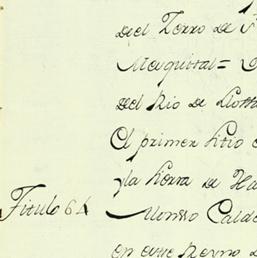 del Zerro de
Mesquital =
del Rio de
El primer sitio
y la tierra de Ha
Titulo 64 Alonsso Calde
en este Reyno d